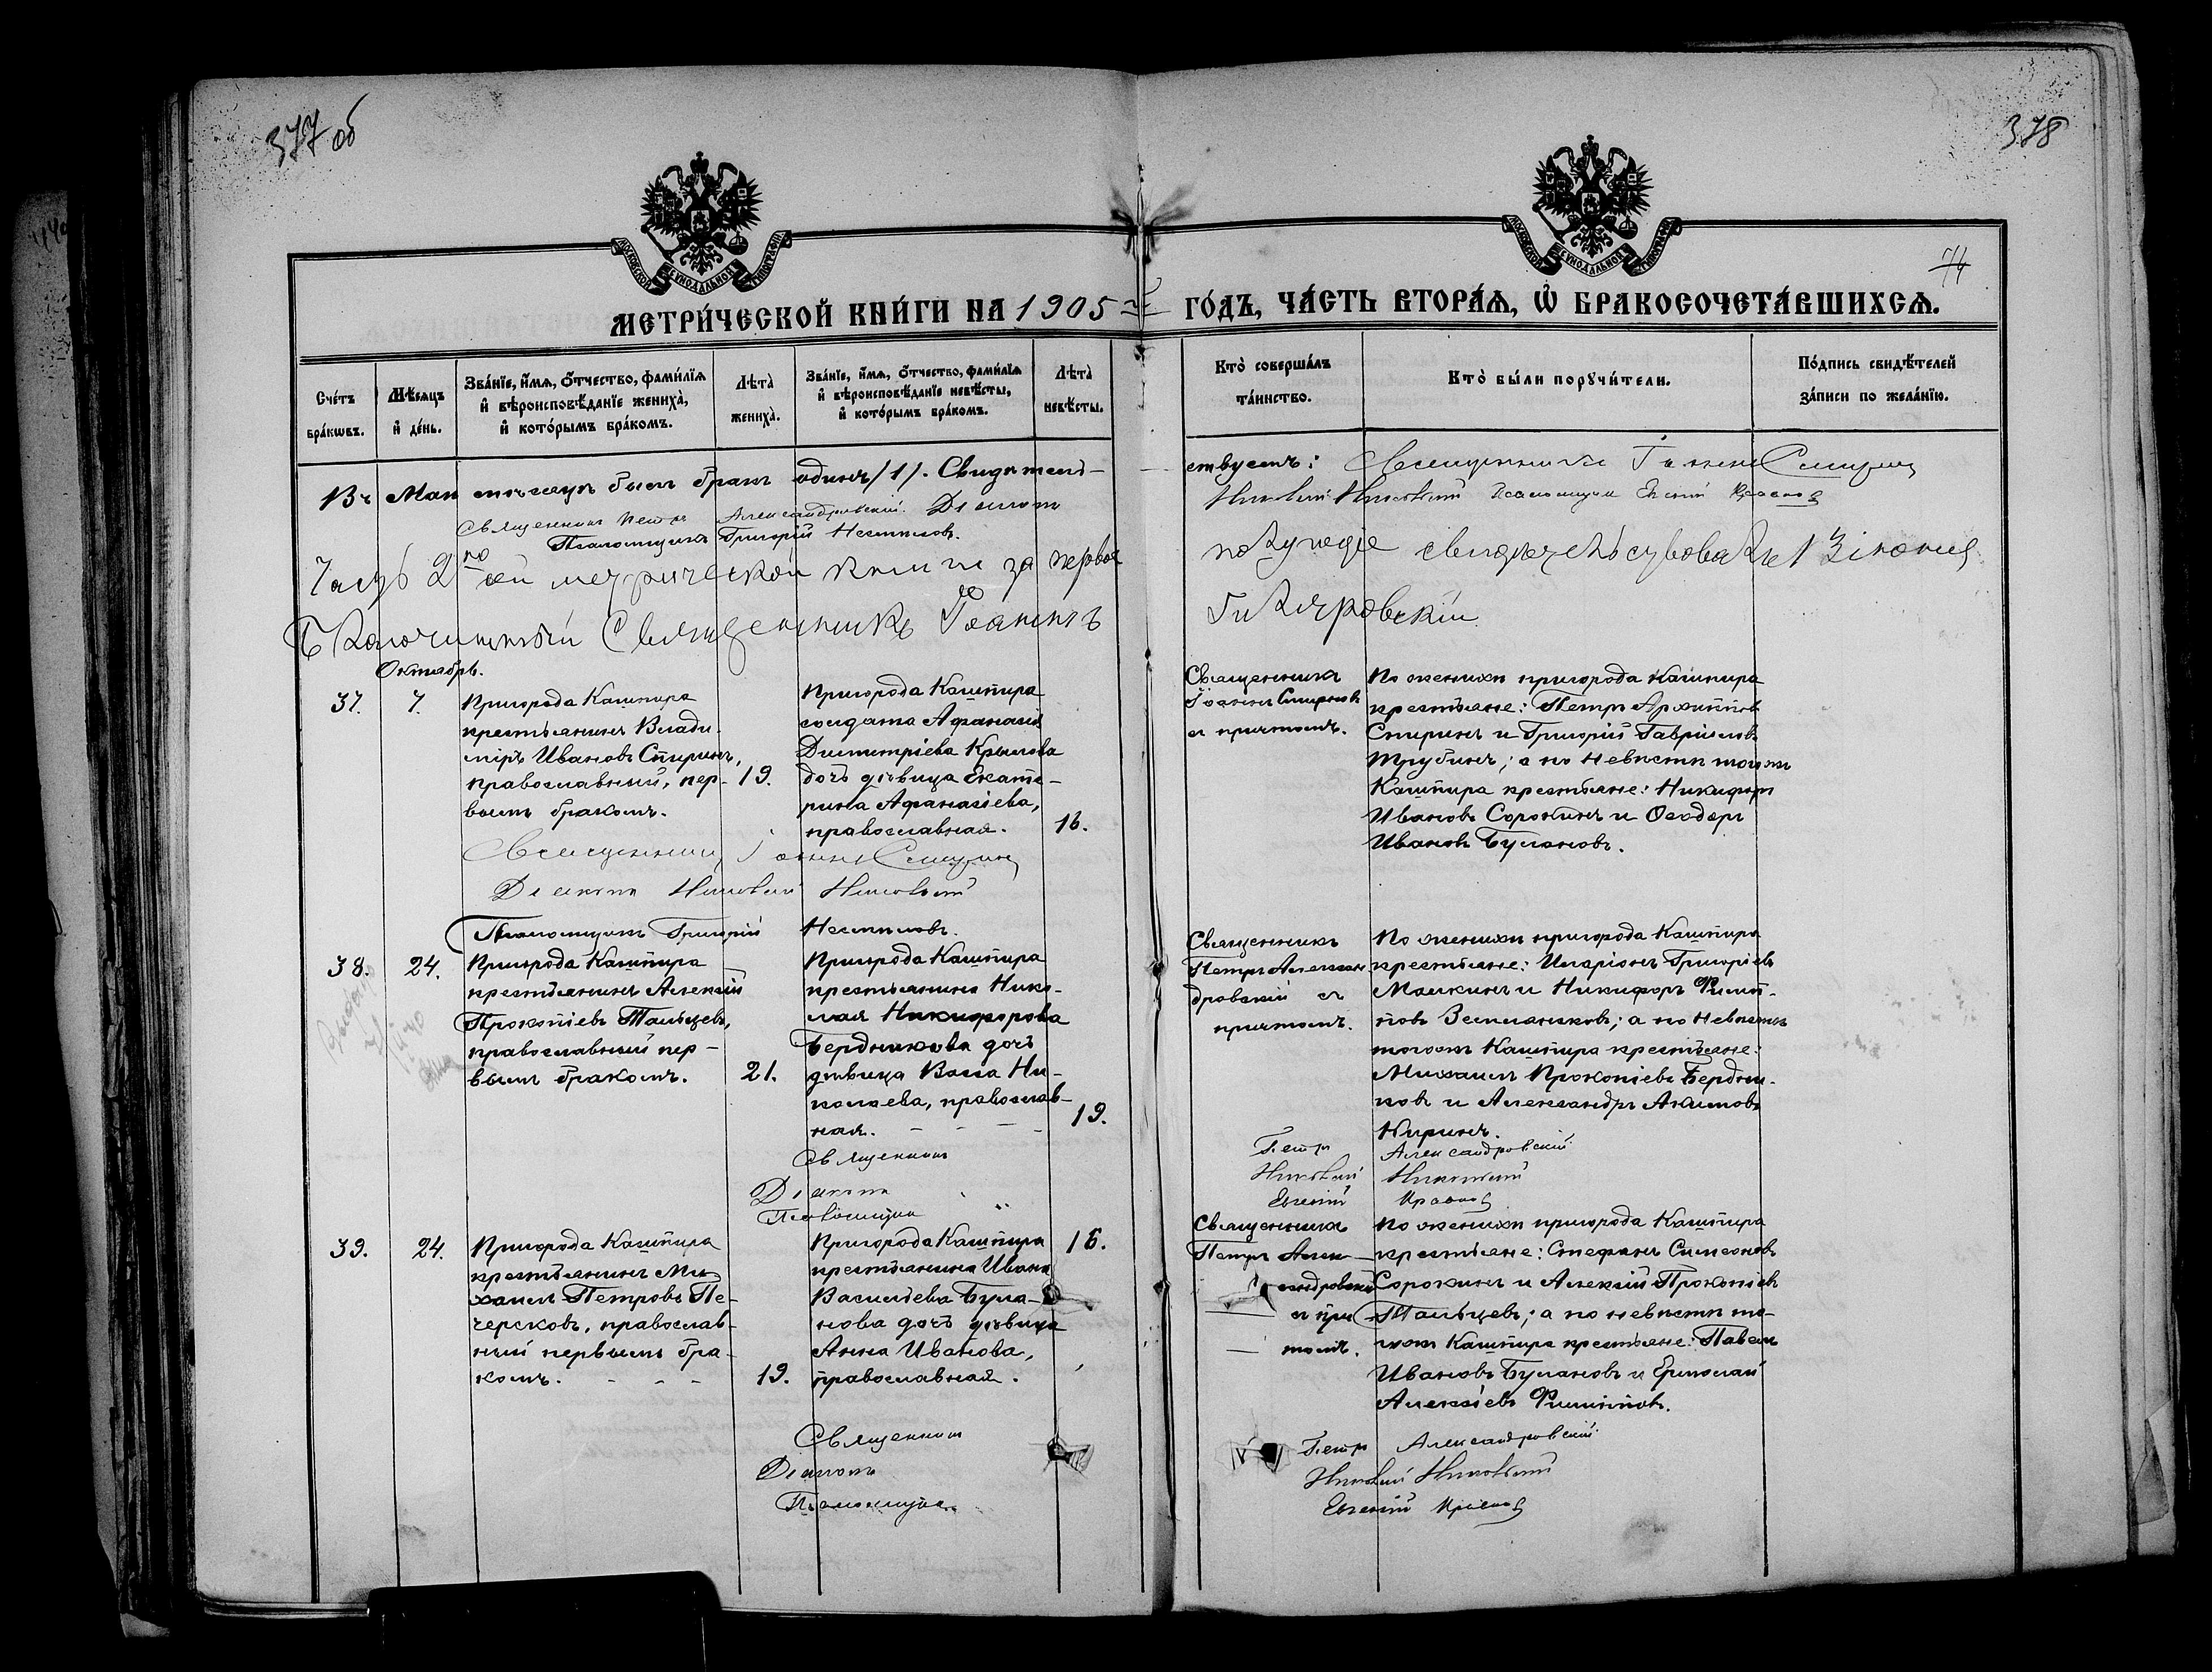 377 об
378
74
МОСКОВСКОЙ СѴНОДАЛЬНОЙ ТИПОГРАФІИ
МОСКОВСКОЙ СѴНОДАЛЬНОЙ ТИПОГРАФІИ
МЕТРИ́ЧЕСКОЙ КНИ́ГИ НА 1905 ГО́ДЪ, ЧА́СТЬ ВТОРА́Я, Ѡ БРАКОСОЧЕТА́ВШИХСЯ.
Сче́тъ бра́кѡвъ.
Мѣ́сяцъ и де́нь.
Зва́нїе, и́мя, ѻ́тчество, фами́лїя и҆ вѣроисповѣ́данїе жениха̀, и҆ кото́рымъ бра́комъ.
Лѣта̀ жениха̀.
Зва́нїе, и́мя, ѻ́тчество, фами́лїя и҆ вѣроисповѣ́данїе невѣ́сты, и҆ кото́рымъ бра́комъ.
Лѣта̀ невѣ́сты.
Кто̀ соверша́лъ та́инство.
Кто̀ бы́ли порꙋчи́тели.
По́дпись свидѣ́телей за́писи по жела́нїю.
Въ Маи мѣсяцѣ былъ бракъ одинъ /1/. Свидѣтель-
ствуемъ: Священникъ Іоаннъ Смирнов
Священникъ Петръ Александровскій. Діаконъ
Николай Никольскій Псаломщикъ Евгеній Краснов
Псаломщикъ Григорій Несмѣловъ.
Часть 2ую сей метрической книги за первое
полугодіе свидѣтельствовалъ
Благочинный Священникъ Іоаннъ
Гиляровскій
Октябрь.
37.
7.
Пригорода Кашпира
крестьянинъ Влади-
міръ Ивановъ Спиринъ,
православный, пер-
вымъ бракомъ.
19.
Пригорода Кашпира
солдата Афанасія
Димитріева Крылова
дочь дѣвица Екате-
рина Афанасіева,
православная.
16.
Священникъ
Іоаннъ Смирновъ
съ причтомъ.
По женихѣ пригорода Кашпира
крестьяне: Петръ Архиппов
Спиринъ и Григорій Гавріиловъ
Трубинъ; а по невѣстѣ тогоже
Кашпира крестьяне: Никифоръ
Ивановъ Сорокинъ и Ѳеодоръ
Ивановъ Булановъ.
Священникъ Іоаннъ Смирнов
Діаконъ Николай Никольскій
Псаломщикъ Григорій Несмѣловъ.
38.
24.
Пригорода Кашпира
крестьянинъ Алексій
Прокопіевъ Тальцевъ,
православный пер-
вымъ бракомъ.
21.
Пригорода Кашпира
крестьянина Нико-
лая Никифорова
Бердникова дочь
дѣвица Васса Ни-
колаева, православ-
ная.
19.
Священникъ
Петръ Алексан-
дровскій съ
причтомъ.
По женихѣ пригорода Кашпира
крестьяне: Иларіонъ Григоріевъ
Малкинъ и Никифоръ Филип-
повъ Земляниковъ; а по невѣстѣ
тогожъ Кашпира крестьяне:
Михаилъ Прокопіевъ Бердни-
ковъ и Александръ Акимовъ
Киринъ.
Священникъ Петръ Александровскій
Діаконъ Николай Никольскій
Псаломщикъ Евгеній Краснов
39.
24.
Пригорода Кашпира
крестьянинъ Ми-
хаилъ Петровъ Пе-
черсковъ, православ-
ный первымъ бра-
комъ.
19.
Пригорода Кашпира
крестьянина Ивана
Васильева Була-
нова дочь дѣвица
Анна Иванова,
православная.
16.
Священникъ
Петръ Алек-
сандровскій
съ прич-
томъ.
По женихѣ пригорода Кашпира
крестьяне: Стефанъ Симеоновъ
Сорокинъ и Алексій Прокопіевъ
Тальцевъ; а по невѣстѣ то-
гожъ Кашпира крестьяне: Павелъ
Ивановъ Булановъ и Ермолай
Алексіевъ Филипповъ.
Священникъ Петръ Александровскій
Діаконъ Николай Никольскій
Псаломщикъ Евгеній Краснов